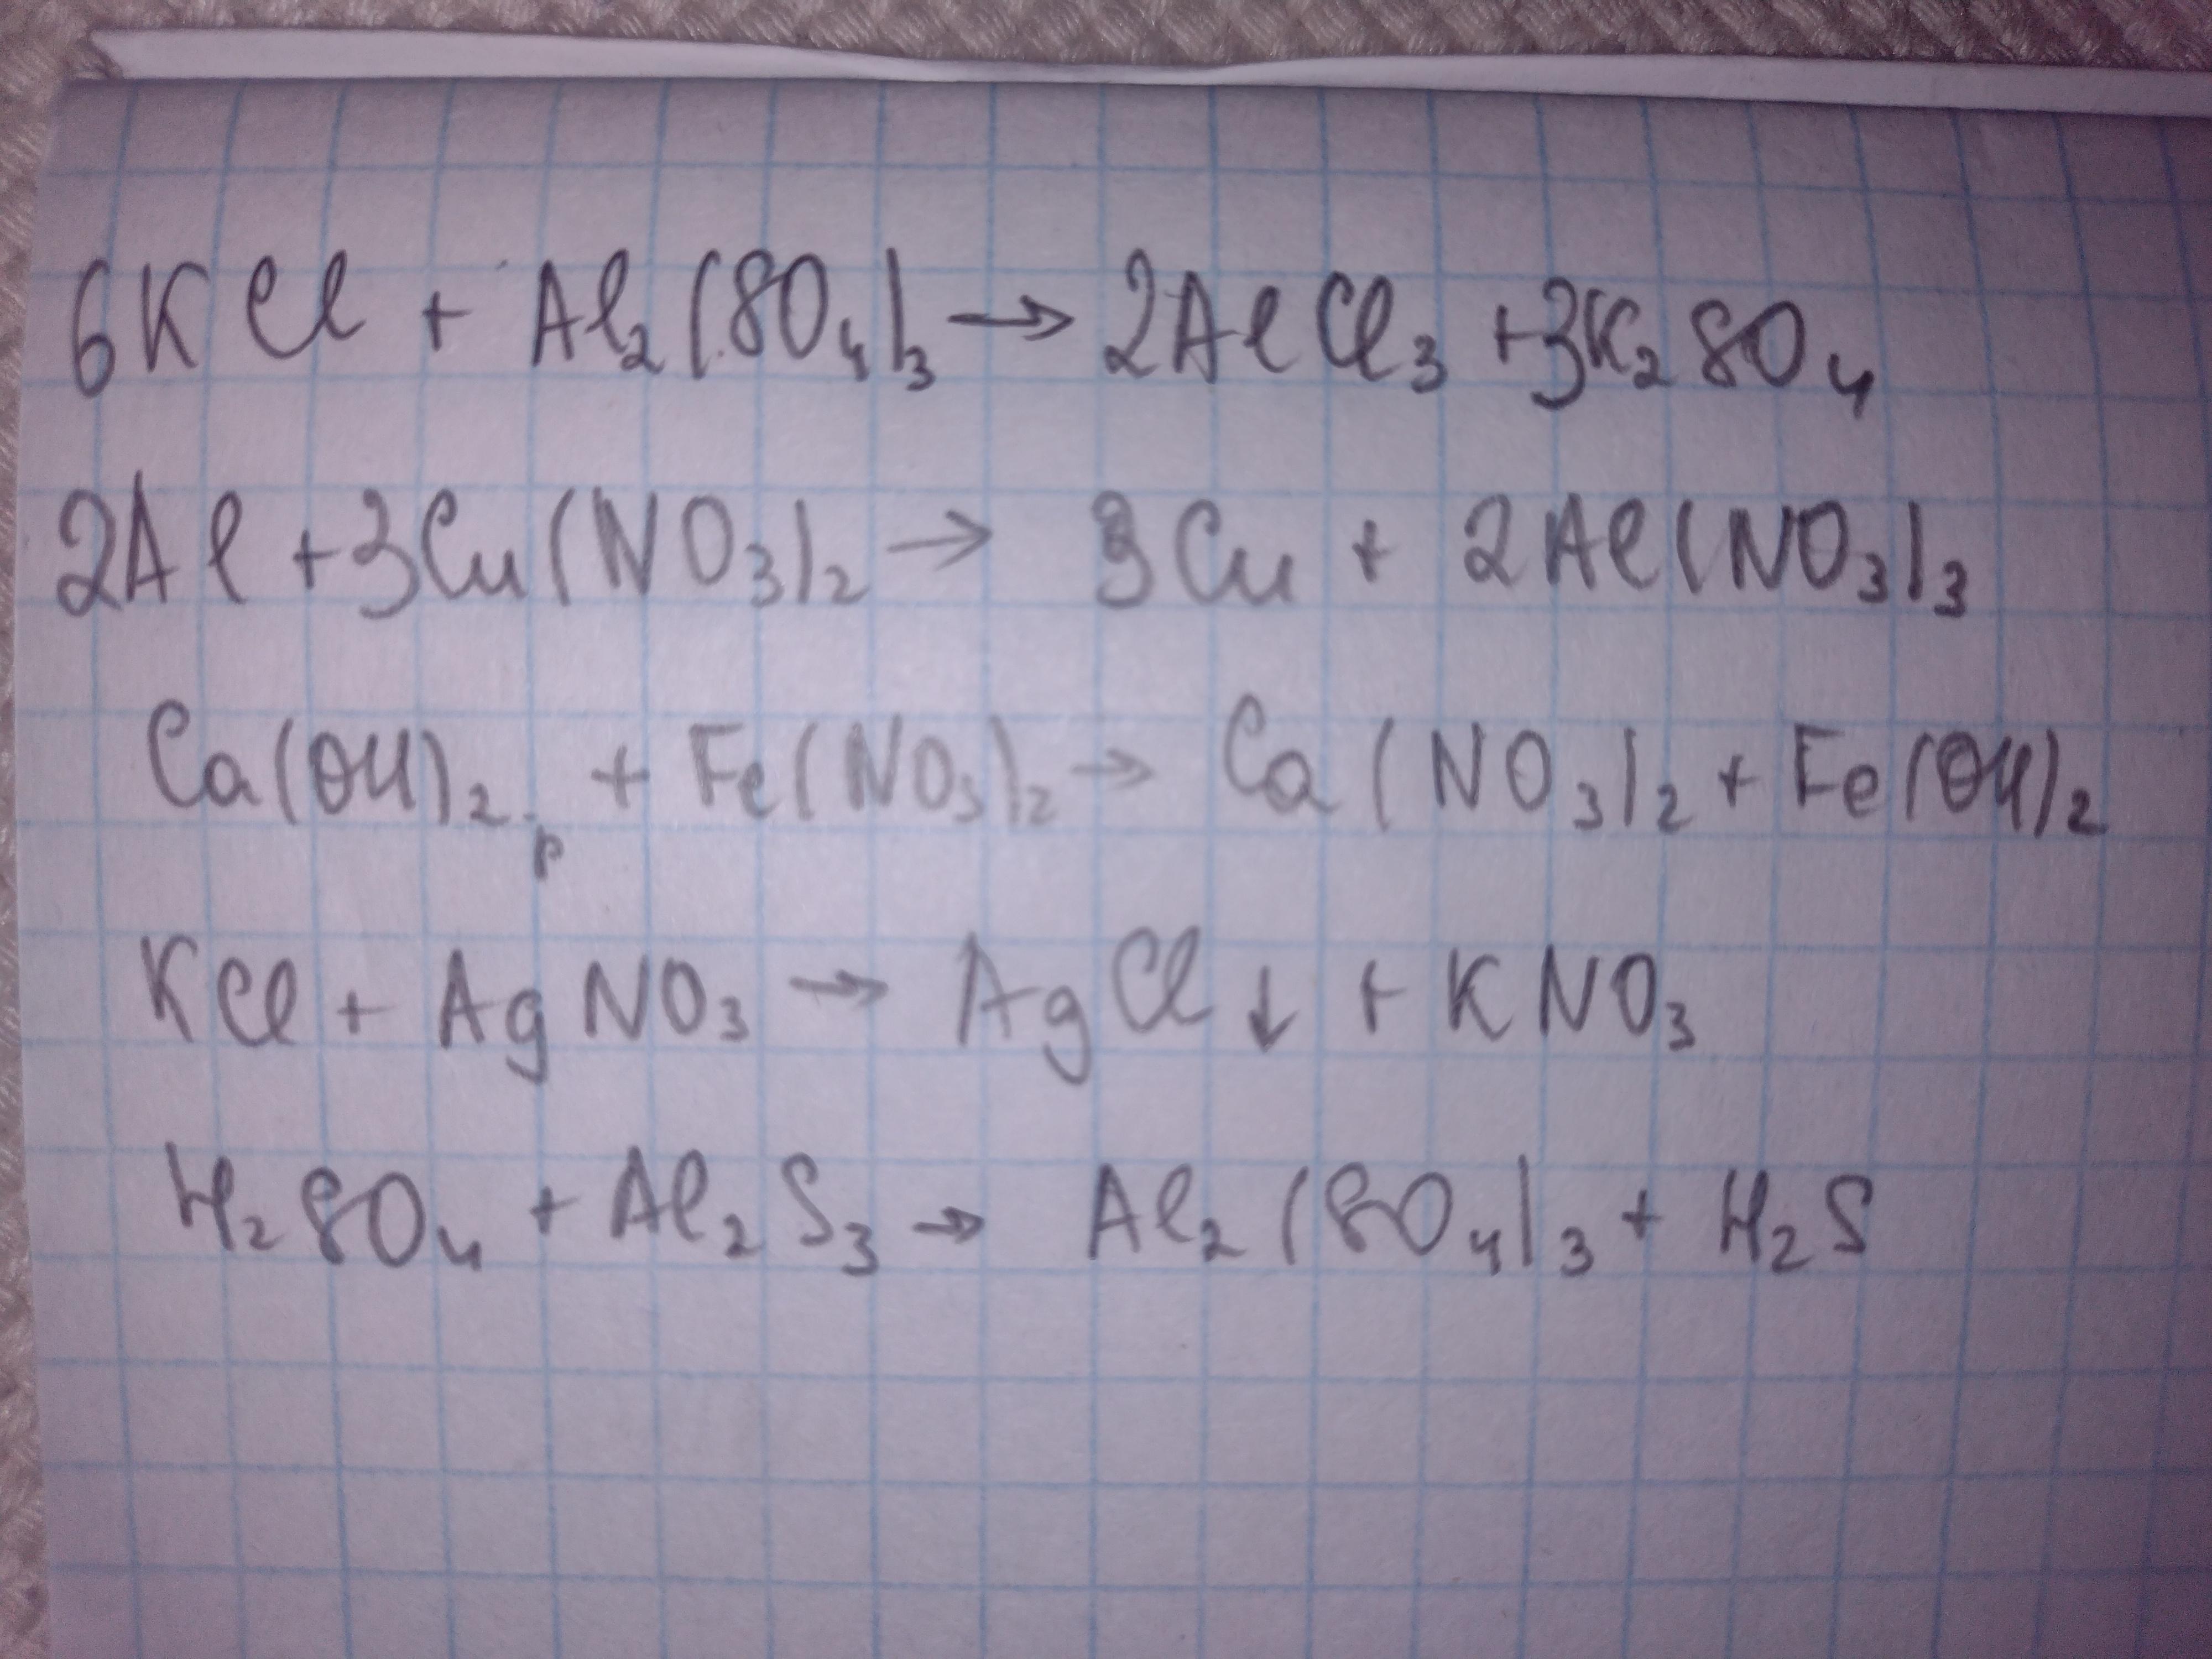 6KCl + Al₂(SO₄)₃ → 2AlCl₃ + 3K₂SO₄
2Al + 3Cu(NO₃)₂ → 3Cu + 2Al(NO₃)₃
Ca(OH)₂ р + Fe(NO₃)₂ → Ca(NO₃)₂ + Fe(OH)₂
KCl + AgNO₃ → AgCl↓ + KNO₃
H₂SO₄ + Al₂S₃ → Al₂(SO₄)₃ + H₂S